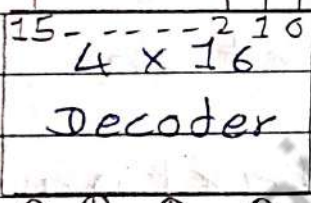 15-----210
4 X 16
Decoder